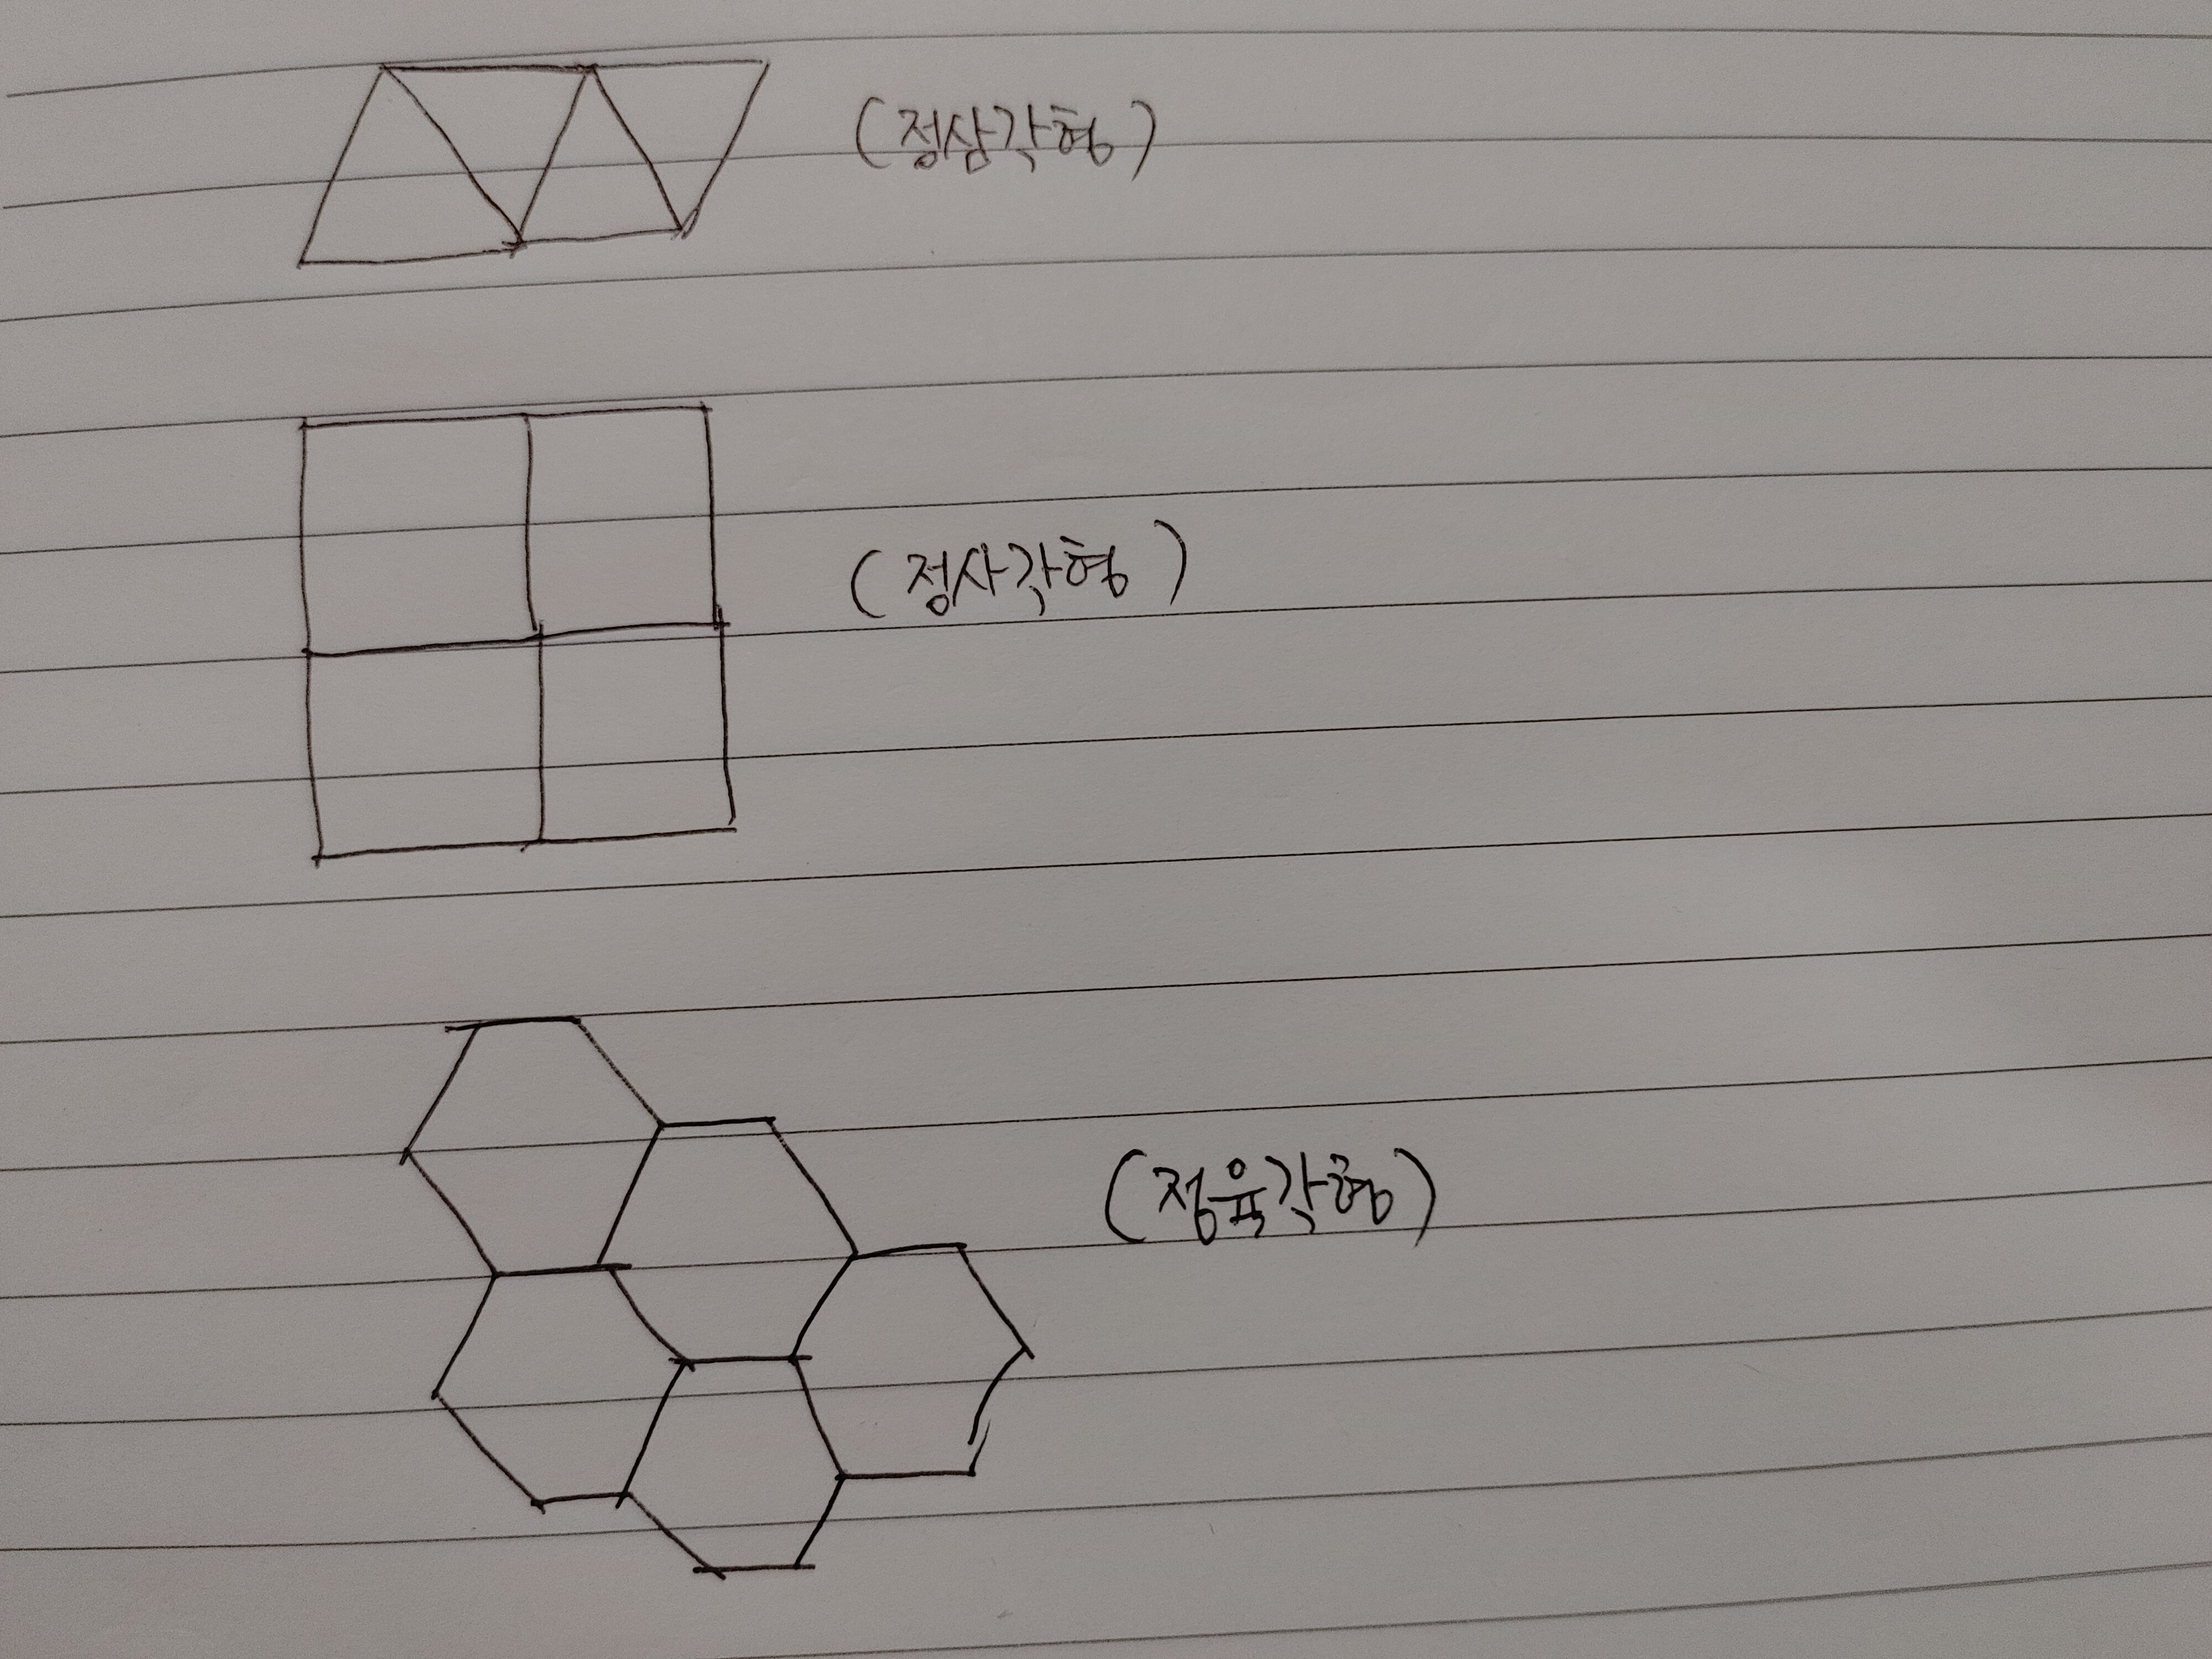 (정삼각형)
(정사각형)
(정육각형)